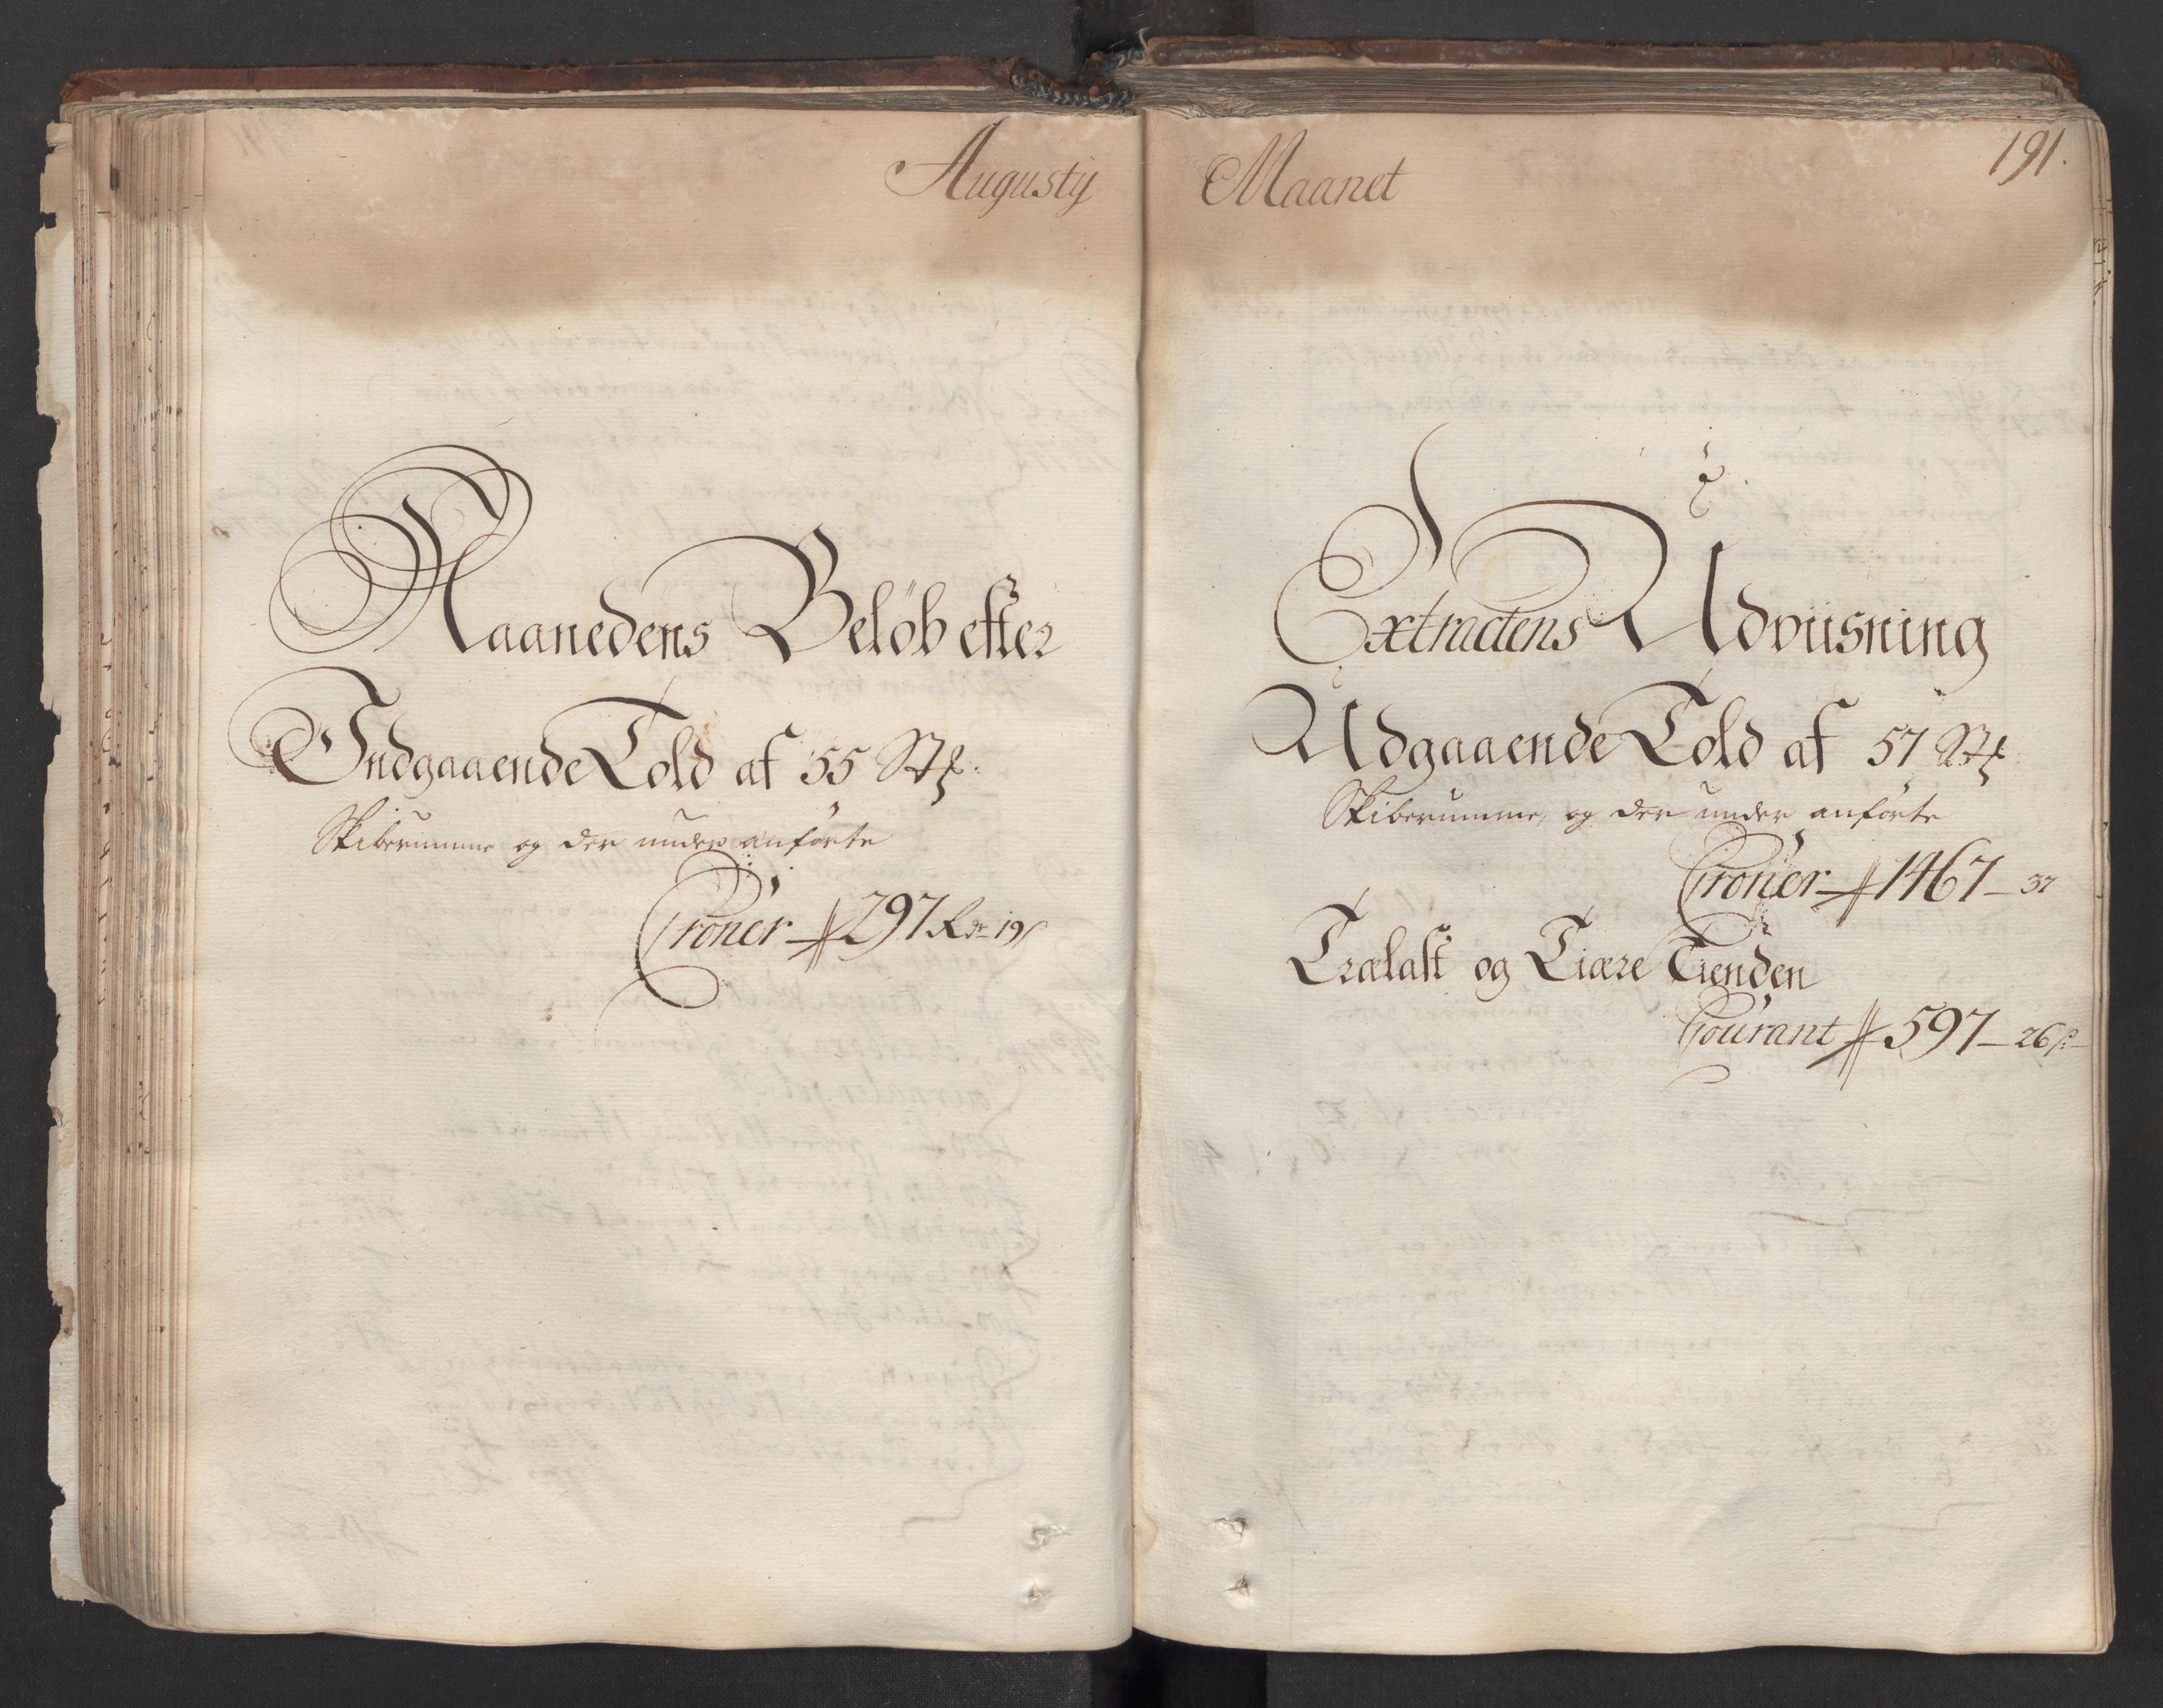 Augusty
Maanedens Beløb efter
Indgaaende Told af 55 Stk:
Skiberumme og der under anförte
Croner 297 Rdr 19 s
Maanet
191.
Extractens Udviisning
Udgaaende Told af 57 Stk
Skiberumme, og der under anförte
Croner 1467 - 37
Trælast og Tiære Tienden
Courant 597 - 26 s